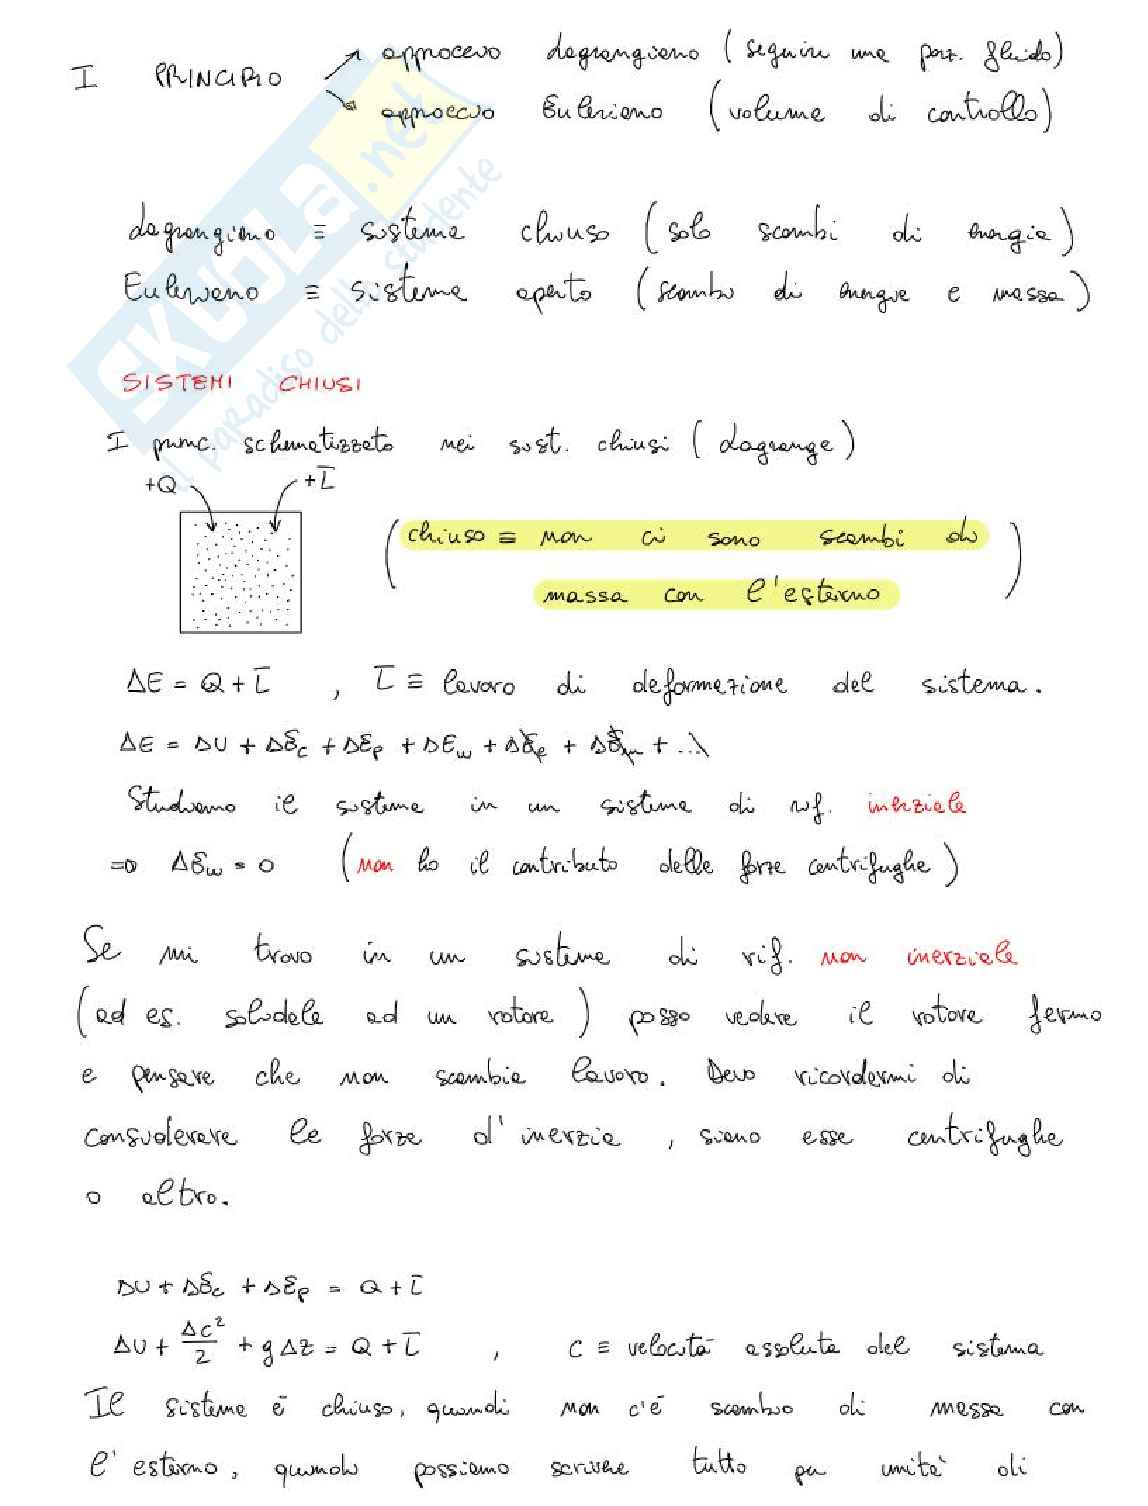 I PRINCIPIO approccio Lagrangiano (seguire una part. fluido)
approccio Euleriano (volume di controllo)
Lagrangiano ≡ sistema chiuso (solo scambi di energia)
Euleriano ≡ sistema aperto (scambio di energia e massa)
SISTEMI CHIUSI
I princ. schematizzato nei sist. chiusi (Lagrange)
+Q +L̄
(chiuso ≡ non ci sono scambi di
massa con l'esterno)
ΔE = Q + L̄ , L̄ ≡ lavoro di deformazione del sistema.
ΔE = ΔU + ΔEc + ΔEp + ΔEw + ΔEe + ΔEm + ...
Studiamo il sistema in un sistema di rif. inerziale
⇒ ΔEw = 0 (non ho il contributo delle forze centrifughe)
Se mi trovo in un sistema di rif. non inerziale
(ad es. solidale ad un rotore) posso vedere il rotore fermo
e pensare che non scambia lavoro. Devo ricordarmi di
considerare le forze d'inerzia, siano esse centrifughe
o altro.
ΔU + ΔEc + ΔEp = Q + L̄
ΔU + Δc²/2 + gΔz = Q + L̄ , c ≡ velocità assoluta del sistema
Il sistema è chiuso, quindi non c'è scambio di massa con
l'esterno, quindi possiamo scrivere tutto per unità di
SKUOLA.net
il paradiso dello studente